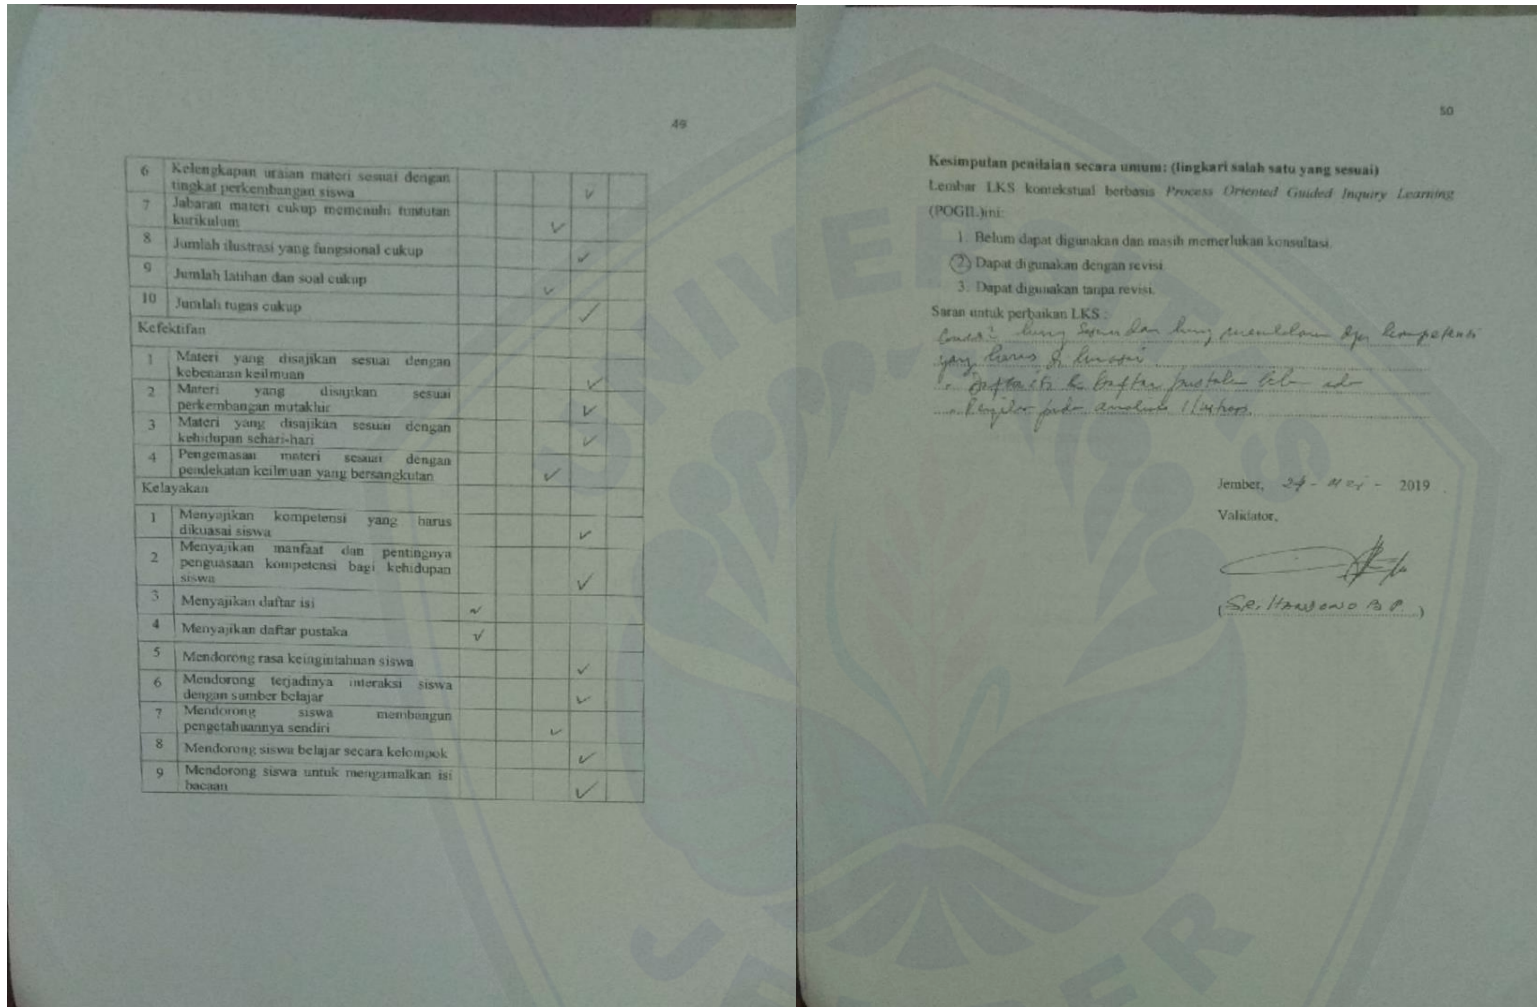 49
6 Kelengkapan uraian materi sesuai dengan
tingkat perkembangan siswa ✓
7 Jabaran materi cukup memenuhi tuntutan
kurikulum ✓
8 Jumlah ilustrasi yang fungsional cukup ✓
9 Jumlah latihan dan soal cukup ✓
10 Jumlah tugas cukup ✓
Kefektifan
1 Materi yang disajikan sesuai dengan
kebenaran keilmuan ✓
2 Materi yang disajikan sesuai
perkembangan mutakhir ✓
3 Materi yang disajikan sesuai dengan
kehidupan sehari-hari ✓
4 Pengemasan materi sesuai dengan
pendekatan keilmuan yang bersangkutan ✓
Kelayakan
1 Menyajikan kompetensi yang harus
dikuasai siswa ✓
2 Menyajikan manfaat dan pentingnya
penguasaan kompetensi bagi kehidupan
siswa ✓
3 Menyajikan daftar isi ✓
4 Menyajikan daftar pustaka ✓
5 Mendorong rasa keingintahuan siswa ✓
6 Mendorong terjadinya interaksi siswa
dengan sumber belajar ✓
7 Mendorong siswa membangun
pengetahuannya sendiri ✓
8 Mendorong siswa belajar secara kelompok ✓
9 Mendorong siswa untuk mengamalkan isi
bacaan ✓
50
Kesimpulan penilaian secara umum: (lingkari salah satu yang sesuai)
Lembar LKS kontekstual berbasis Process Oriented Guided Inquiry Learning
(POGIL)ini:
1. Belum dapat digunakan dan masih memerlukan konsultasi.
2. Dapat digunakan dengan revisi
3. Dapat digunakan tanpa revisi.
Saran untuk perbaikan LKS :
kompetensi
yang harus
Daftar pustaka
pada
Jember, 24 - Mei - 2019
Validator,
(SRI HANDONO B P.)
UNIVERSITAS
JEMBER